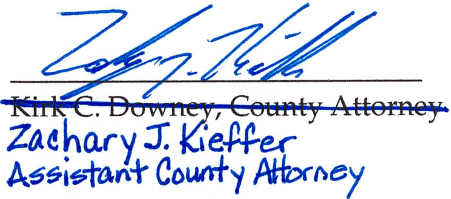 Zachary J. Kieffer
Kirk C. Downey, County Attorney
Zachary J. Kieffer
Assistant County Attorney